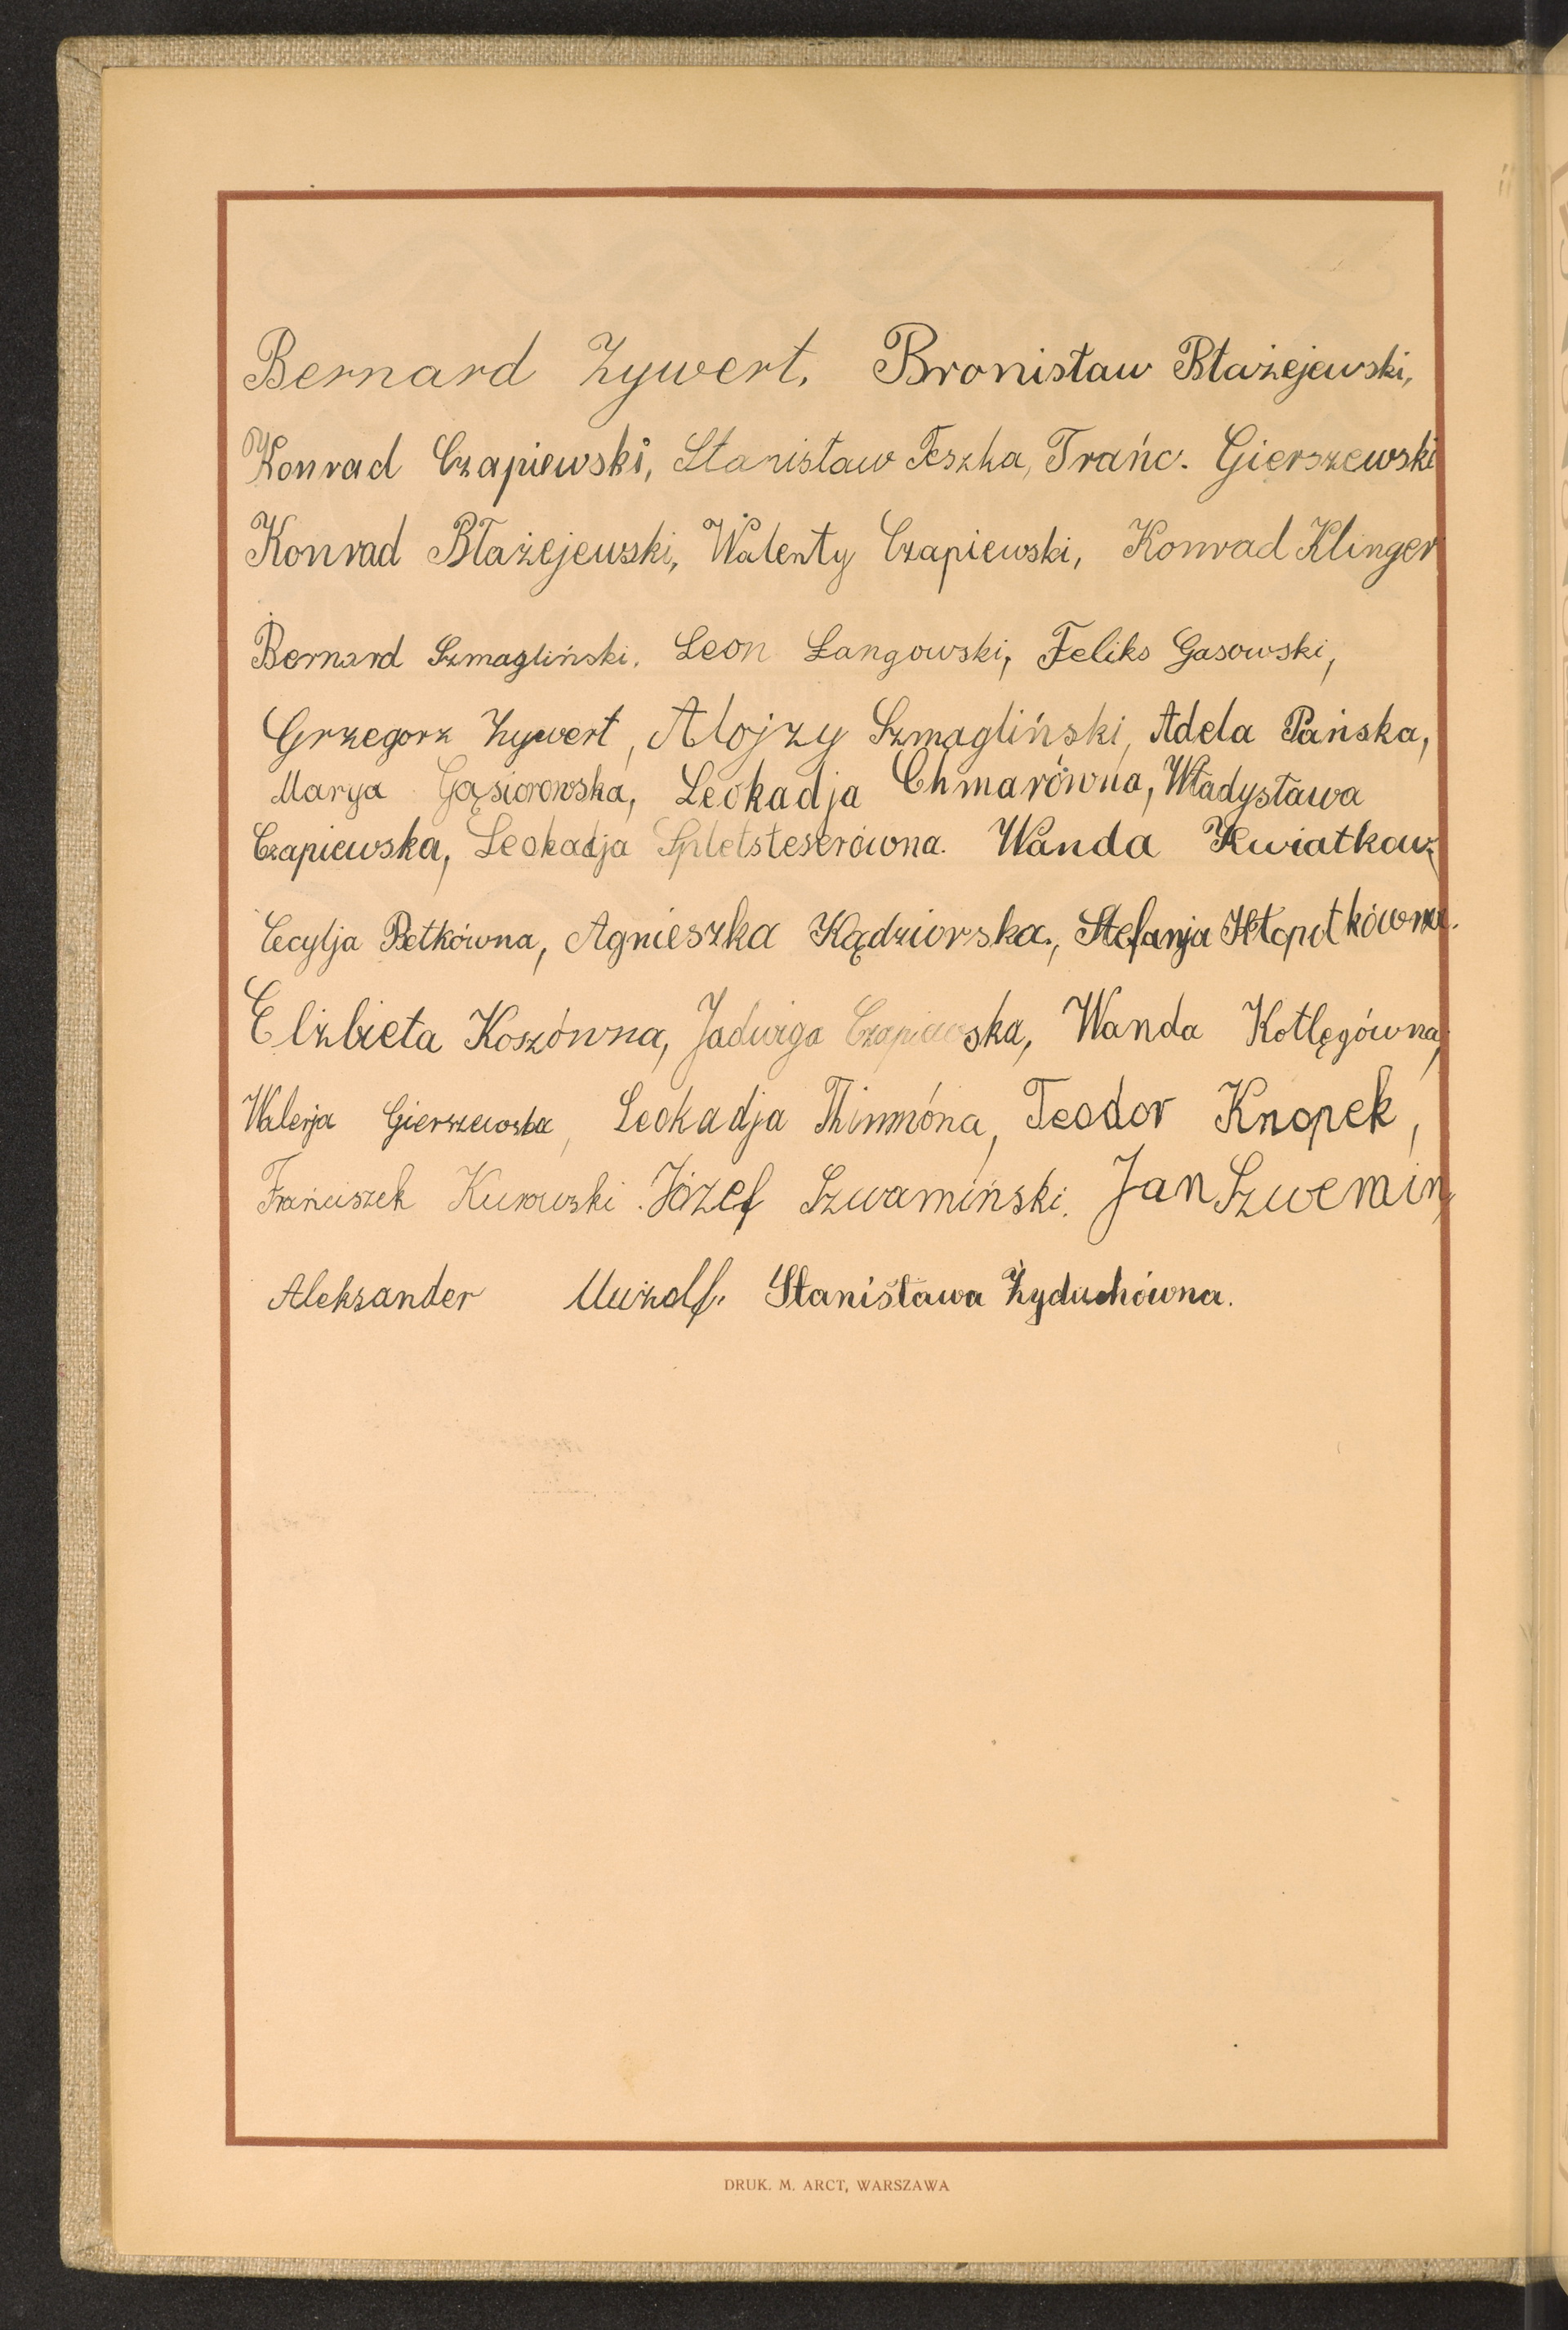 Bernard Zywert, Bronisław Błażejewski,
Konrad Czapiewski, Stanisław Teszka, Frańc. Gierszewski
Konrad Błażejewski, Walenty Czapiewski, Konrad Klinger
Bernard Szmagliński, Leon Langowski, Feliks Gasowski,
Grzegorz Zywert, Alojzy Szmagliński, Adela Pańska,
Marya Gąsiorowska, Leokadja Chmarówna, Władysława
Czapiewska, Leokadja Wanda Kwiatkow
Cecylja Betkówna, Agnieszka Kądziorska, Stefanja Kłopotkówna.
Elżbieta Koszówna, Jadwiga Czapiewska, Wanda Kotlęgówna,
Walerja Gierszewska, Leokadja Teodor Knopek,
Frańciszek Kurowski. Józef Szwamiński. Jan Szwemin,
Aleksander Stanisława Żyduchówna.
DRUK. M. ARCT, WARSZAWA